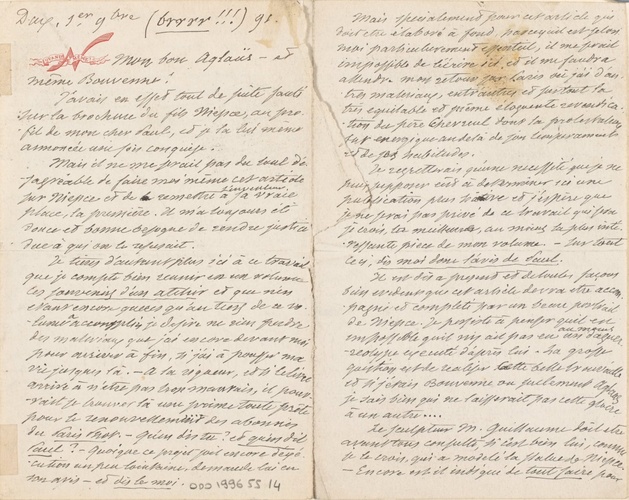 Dax, 1er 9bre (brrrr!!!) 91.
Mon bon Aglaüs – et
même Bouvenne!
J'avais en effet tout de suite sauté
sur la brochure du fils Niepce, au pro-
fil de mon cher Paul, et je la lui même
annoncée une fois conquise.
Mais il ne me paraît pas du tout dé-
sagréable de faire moi même cet article
sur Niepce et de remettre l'inventeur à sa vraie
place, la première. Il m'a toujours été
douce et bonne besogne de rendre justice
due à qui on la refusait.
Je tiens d'autant plus ici à ce travail
que je compte bien réunir en un volume
ces souvenirs d'un atelier et que rien
étant
accomplis je désire ne rien perdre
des matériaux que j'ai encore devant moi
pour arriver à fin, si j'ai à pousser ma
vie jusques là. – A la rigueur, et si le livre
arrive à n'être pas trop mauvais, il pour-
rait se trouver là une prime toute prête
pour le renouvellement des abonnés
du Paris Phot. – Qu'en dis tu? et qu'en dit
Paul? – Quoique ce projet soit encore d'exé-
cution un peu lointaine, demande lui en
son avis – et dis le moi.
000 1996 55 14
Mais spécialement pour cet article qui
doit être élaboré à fond, parce qu'il est selon
moi particulièrement essentiel, il me paraît
impossible de l'écrire ici, et il me faudra
attendre mon retour par Paris où j'ai d'au-
tres matériaux, entr'autres et surtout la
très équitable et même éloquente revendica-
tion du père Chevreul dont la protestation
fut énergique au delà de son tempérament
et de ses habitudes.
Je regretterais qu'une nécessité que je ne
puis supposer eût à déterminer ici une
publication plus hative et j'espère que
je ne serai pas privé de ce travail qui sera
je crois, la meilleure, au moins la plus inté-
ressante pièce de mon volume. – Sur tout
ceci, dis moi donc l'avis de Paul.
Il est dès à présent et de toutes façons
bien évident que cet article devra être accom-
pagné et complété par un beau portrait
de Niepce. Je persiste à penser qu'il est
impossible qu'il n'y ait pas eu au moins un daguer-
réotype exécuté d'après lui. La grosse
question est de réaliser cette belle trouvaille
et si j'étais Bouvenne ou seulement Aglaüs
je sais bien que ne laisserait pas cette gloire
à un autre....
Le sculpteur M. Guillaume doit être
avant tous consulté si c'est bien lui, comme
je le crois, qui a modelé la statue de Niepce.
– Encore est il indiqué de tout faire pour